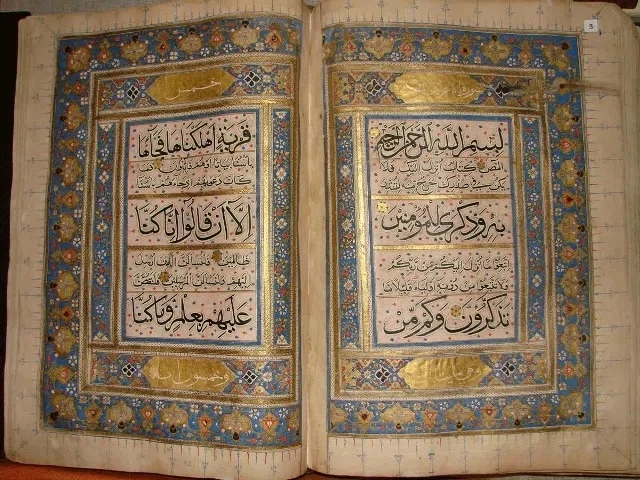 3
بسم الله الرحمن الرحيم
المص كتاب انزل اليك فلا
يكن في صدرك حرج منه لتنذر
به وذكرى للمؤمنين
اتبعوا ما انزل اليكم من ربكم
ولا تتبعوا من دونه اولياء قليلا ما
تذكرون وكم من
خمس
قرية اهلكناها فجاءها
بأسنا بياتا او هم قائلون فما
كان دعويهم اذ جاءهم بأسنا
الا ان قالوا انا كنا
ظالمين فلنسئلن الذين ارسل
اليهم ولنسئلن المرسلين فلنقصن
عليهم بعلم وما كنا